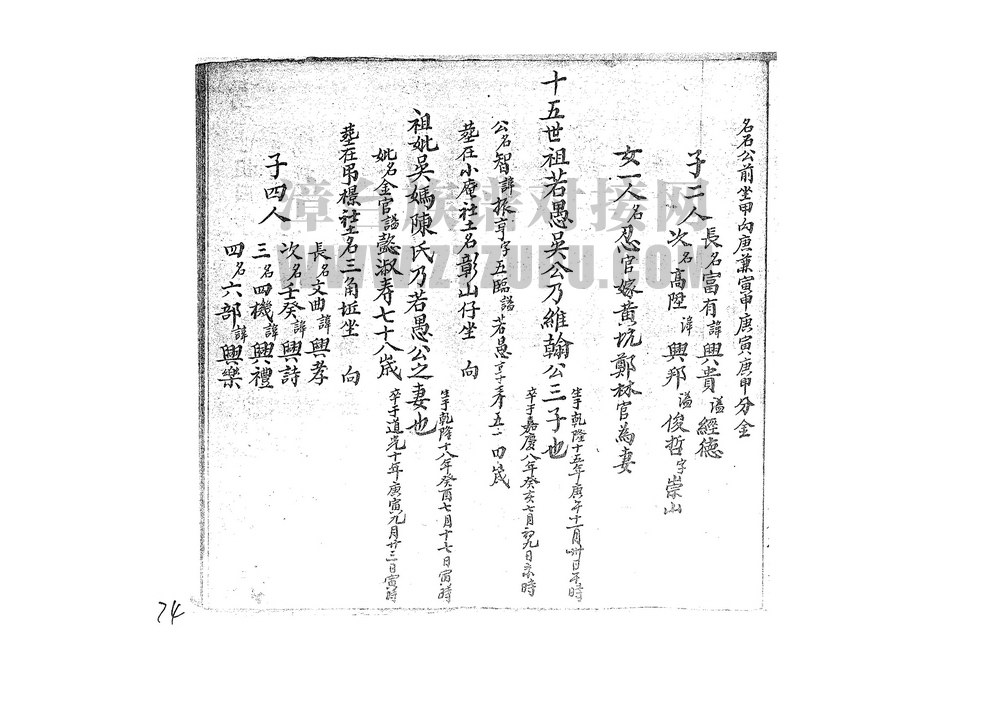 名石公前坐甲向庚兼寅申庚寅庚申分金
子二人
長名富有諱興貴謚經德
次名高陞諱興邦謚俊哲字崇山
女一人名忍官嫁黄坑鄭林官為妻
十五世祖若愚吳公乃維翰公三子也
生于乾隆十五年庚午十一月卅日 時
卒于嘉慶八年癸亥七月初九日亥時
公名智諱振亨字五臨謚若愚享寿五十四歲
葬在小庵社土名彰山仔坐 向
祖妣吳媽陳氏乃若愚公之妻也
生于乾隆十八年癸酉七月十七日寅時
卒于道光十年庚寅九月廿三日寅時
妣名金官謚懿淑寿七十八歲
葬在吊檺社土名三角坵坐 向
子四人
長名文曲諱興孝
次名壬癸諱興詩
三名四機諱興禮
四名六部諱興樂
74
漳台族谱对接网
WWW.ZTZUPU.COM